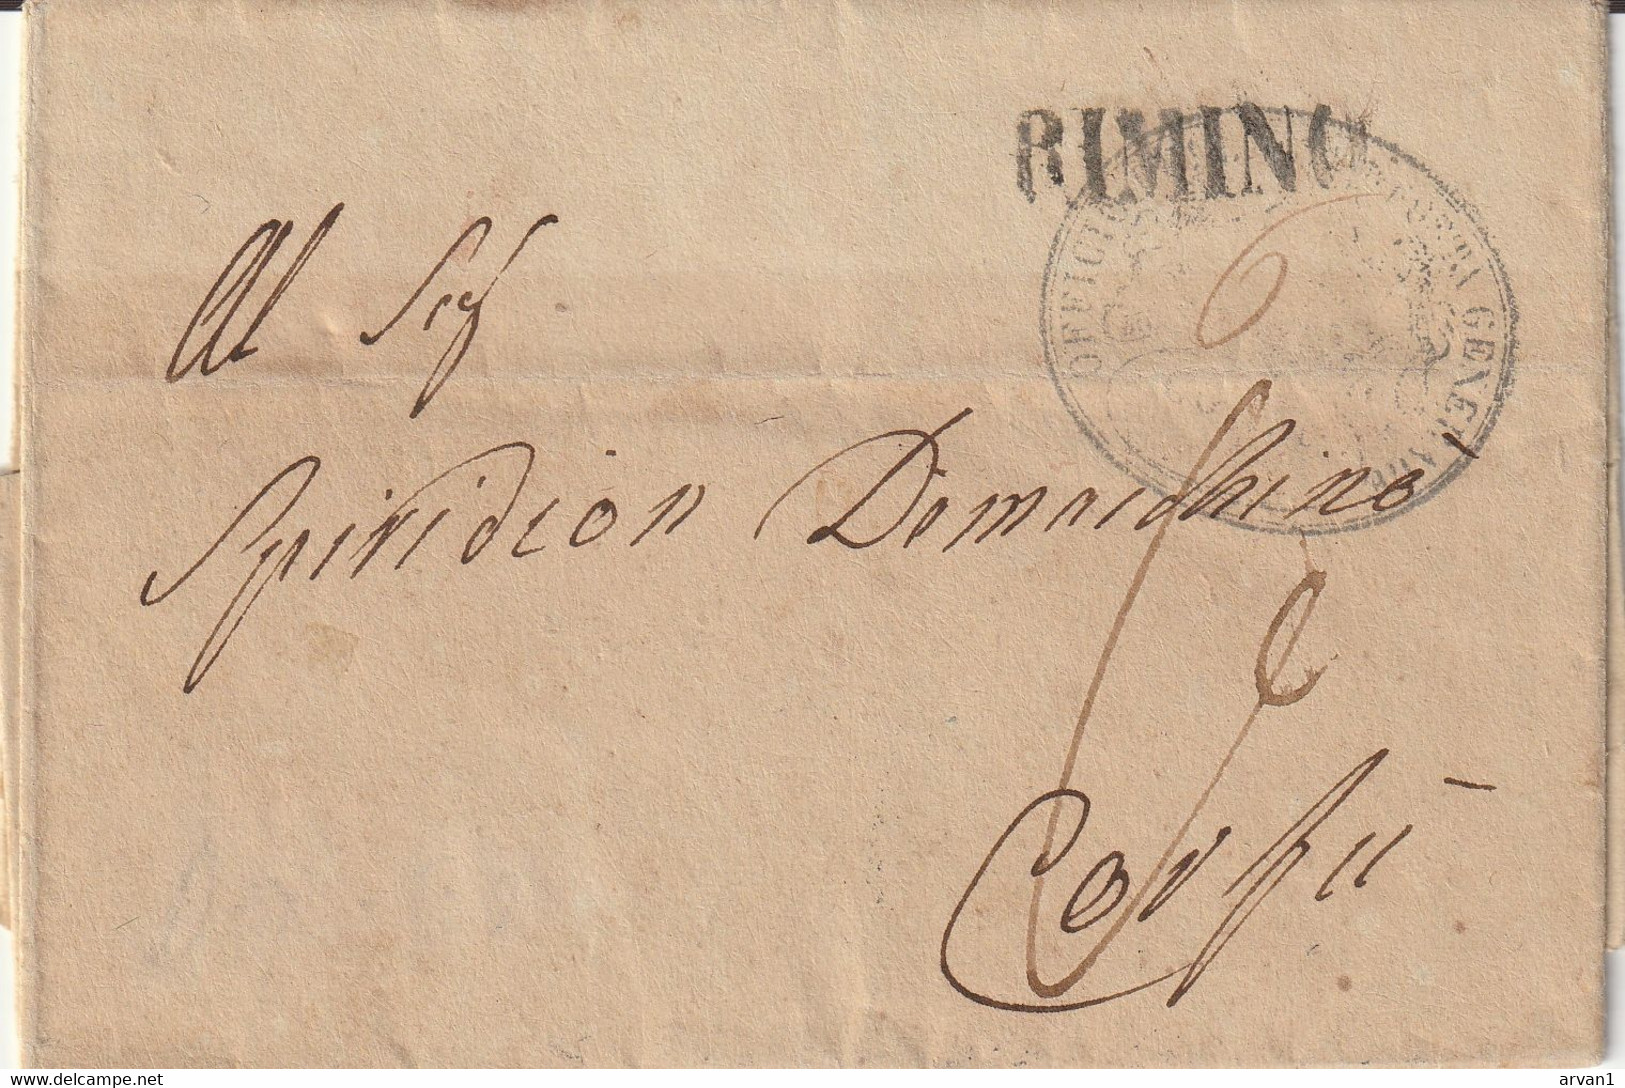 RIMINO
OFFICIO POSTA GENERALE
6
Al Sigr
Spiridion Domenichino
Corfù
www.delcampe.net
arvan1